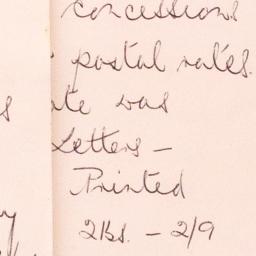 concessions
postal rates.
was
Letters —
Printed
2lbs. — 2/9